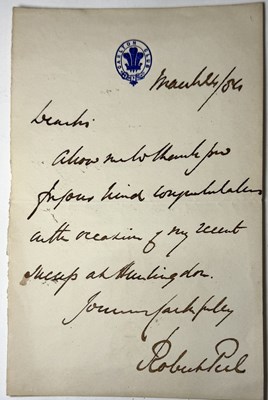 CARLTON CLUB
March 24/84
Dear Sir
Allow me to thank you
for your kind congratulations
on the occasion of my recent
success at Huntingdon.
Yours faithfully
Robert Peel